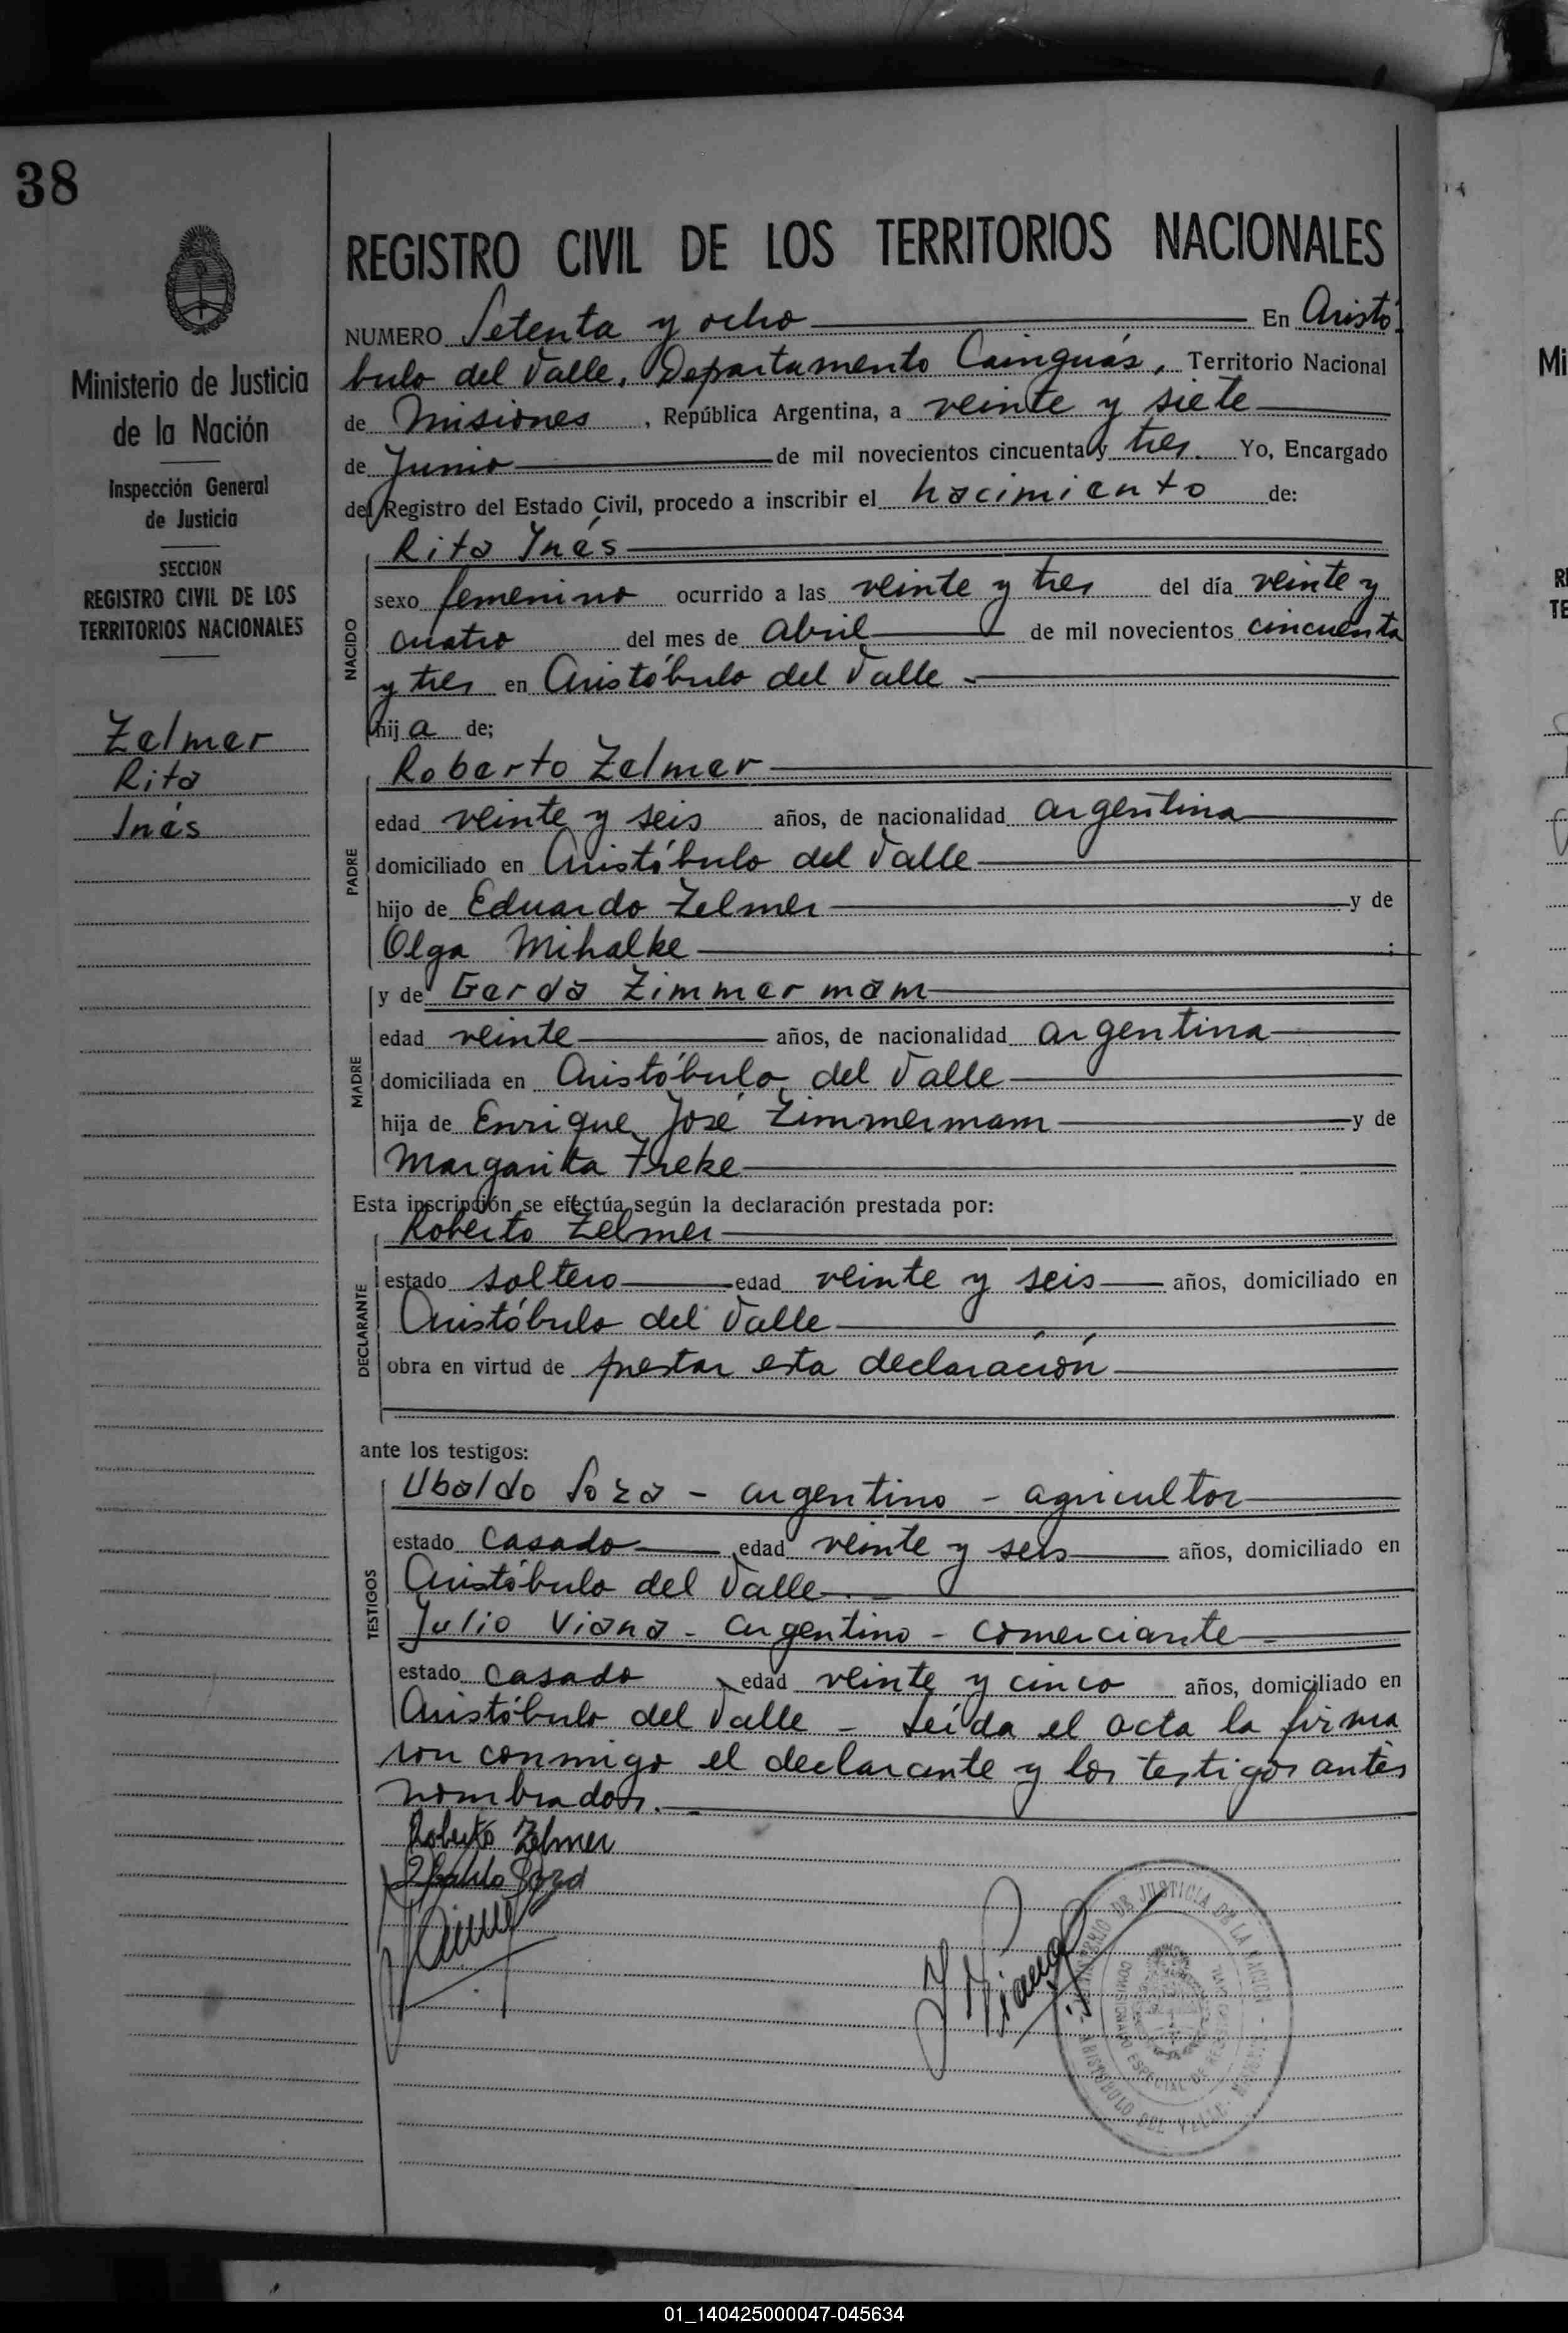 38
Ministerio de Justicia
de la Nación
Inspección General
de Justicia
SECCION
REGISTRO CIVIL DE LOS
TERRITORIOS NACIONALES
Zelmer
Rita
Inés
REGISTRO CIVIL DE LOS TERRITORIOS NACIONALES
NUMERO Setenta y ocho En Aristó
bulo del Valle, Departamento Cainguás, Territorio Nacional
de Misiones, República Argentina, a veinte y siete
de Junio de mil novecientos cincuenta y tres. Yo, Encargado
del Registro del Estado Civil, procedo a inscribir el nacimiento de:
Rita Inés
NACIDO
sexo femenino ocurrido a las veinte y tres del día veinte y
cuatro del mes de Abril de mil novecientos cincuenta
y tres en Aristóbulo del Valle
hija de;
Roberto Zelmer
PADRE
edad veinte y seis años, de nacionalidad argentina
domiciliado en Aristóbulo del Valle
hijo de Eduardo Zelmer y de
Olga Mihalke
y de Gerda Zimmermam
MADRE
edad veinte años, de nacionalidad argentina
domiciliada en Aristóbulo del Valle
hija de Enrique José Zimmermam y de
Margarita Freke
Esta inscripción se efectúa según la declaración prestada por:
Roberto Zelmer
DECLARANTE
estado soltero edad veinte y seis años, domiciliado en
Aristóbulo del Valle
obra en virtud de prestar esta declaración
ante los testigos:
Ubaldo Soza - argentino - agricultor
TESTIGOS
estado casado edad veinte y seis años, domiciliado en
Aristóbulo del Valle
Julio Viana - argentino - comerciante
estado casado edad veinte y cinco años, domiciliado en
Aristóbulo del Valle - Leída el acta la firma
ron conmigo el declarante y los testigos antes
nombrados.
Roberto Zelmer
Ubaldo Soza
J Viana
MINISTERIO DE JUSTICIA DE LA NACION
ARISTOBULO DEL VALLE
01_140425000047-045634